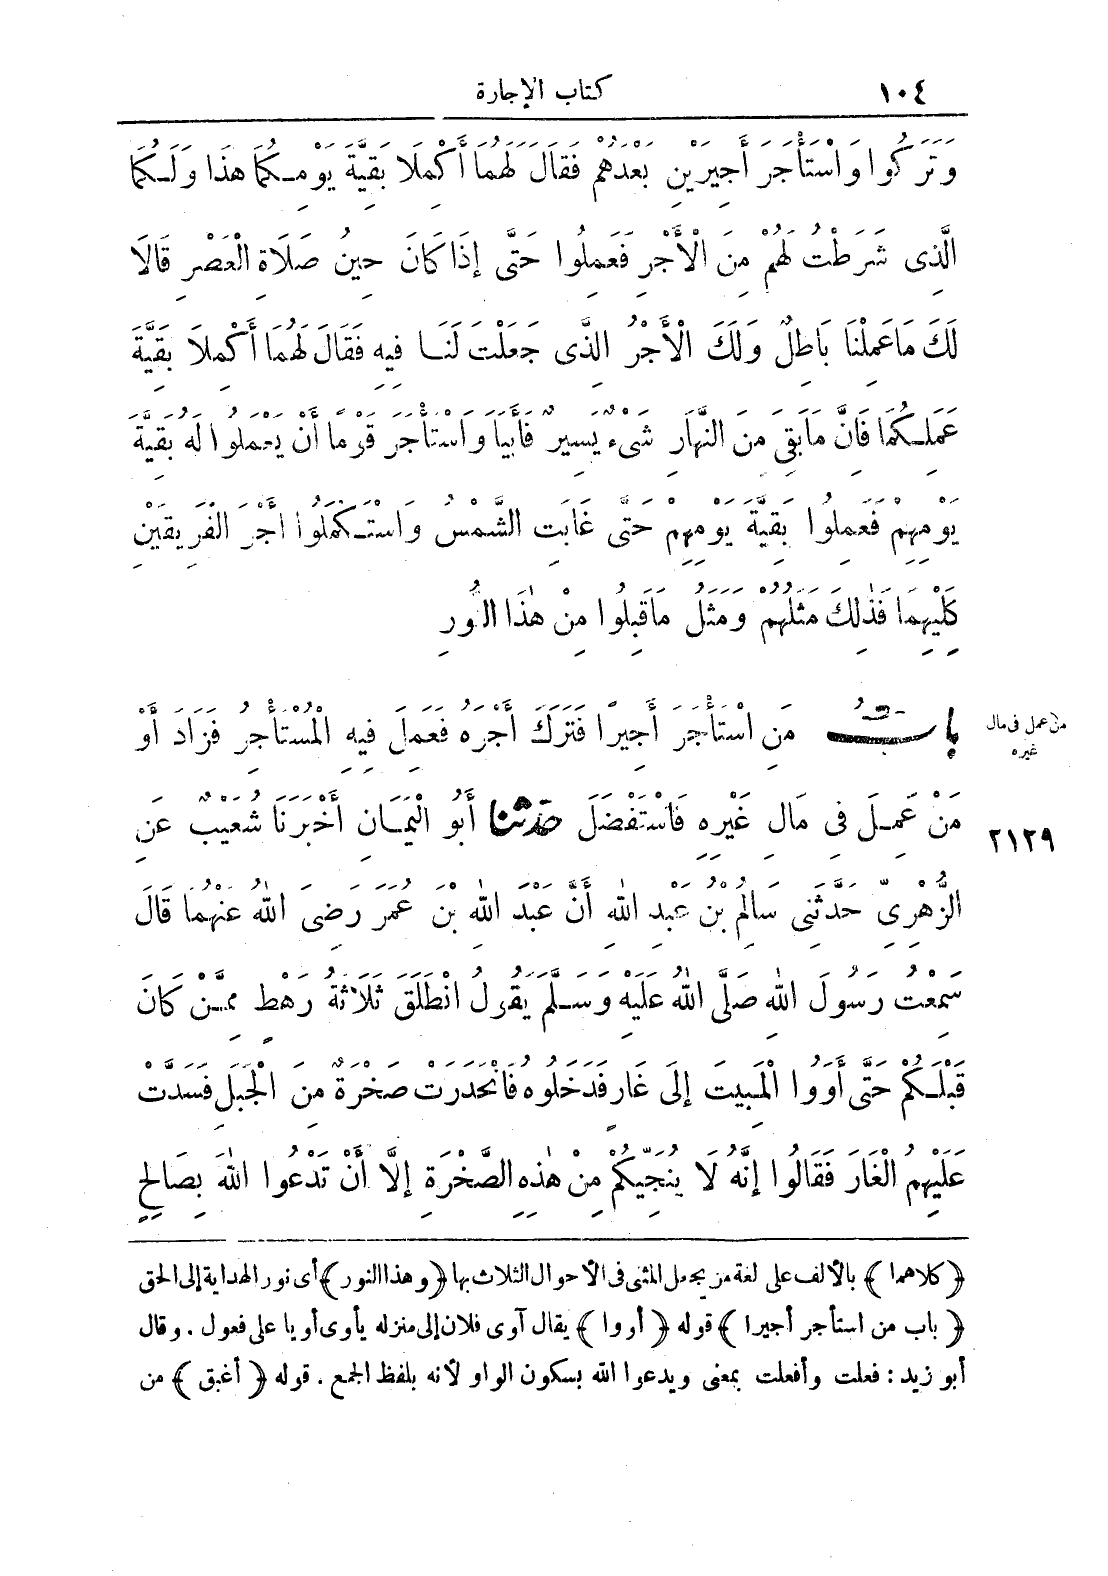 ١٠٤ كتاب الإجارة
وَتَرَكُوا وَاسْتَأْجَرَ أَجِيرَيْنِ بَعْدَهُمْ فَقَالَ لَهُمَا أَكْمِلَا بَقِيَّةَ يَوْمِكُمَا هَذَا وَلَكُمَا
الَّذِى شَرَطْتُ لَهُمْ مِنَ الْأَجْرِ فَعَمِلُوا حَتَّى إِذَا كَانَ حِينُ صَلَاةِ الْعَصْرِ قَالَا
لَكَ مَا عَمِلْنَا بَاطِلٌ وَلَكَ الْأَجْرُ الَّذِى جَعَلْتَ لَنَا فِيهِ فَقَالَ لَهُمَا أَكْمِلَا بَقِيَّةَ
عَمَلِكُمَا فَإِنَّ مَا بَقِىَ مِنَ النَّهَارِ شَىْءٌ يَسِيرٌ فَأَبَيَا وَاسْتَأْجَرَ قَوْمًا أَنْ يَعْمَلُوا لَهُ بَقِيَّةَ
يَوْمِهِمْ فَعَمِلُوا بَقِيَّةَ يَوْمِهِمْ حَتَّى غَابَتِ الشَّمْسُ وَاسْتَكْمَلُوا أَجْرَ الْفَرِيقَيْنِ
كِلَيْهِمَا فَذَلِكَ مَثَلُهُمْ وَمَثَلُ مَا قَبِلُوا مِنْ هٰذَا النُّورِ
بَابُ مَنِ اسْتَأْجَرَ أَجِيرًا فَتَرَكَ أَجْرَهُ فَعَمِلَ فِيهِ الْمُسْتَأْجِرُ فَزَادَ أَوْ
من عمل فى مال
غيره
مَنْ عَمِلَ فِى مَالِ غَيْرِهِ فَاسْتَفْضَلَ حَدَّثَنَا أَبُو الْيَمَانِ أَخْبَرَنَا شُعَيْبٌ عَنِ
٢١٢٩
الزُّهْرِىِّ حَدَّثَنِى سَالِمُ بْنُ عَبْدِ اللهِ أَنَّ عَبْدَ اللهِ بْنَ عُمَرَ رَضِىَ اللهُ عَنْهُمَا قَالَ
سَمِعْتُ رَسُولَ اللهِ صَلَّى اللهُ عَلَيْهِ وَسَلَّمَ يَقُولُ انْطَلَقَ ثَلَاثَةُ رَهْطٍ مِمَّنْ كَانَ
قَبْلَكُمْ حَتَّى أَوَوُا الْمَبِيتَ إِلَى غَارٍ فَدَخَلُوهُ فَانْحَدَرَتْ صَخْرَةٌ مِنَ الْجَبَلِ فَسَدَّتْ
عَلَيْهِمُ الْغَارَ فَقَالُوا إِنَّهُ لَا يُنَجِّيكُمْ مِنْ هٰذِهِ الصَّخْرَةِ إِلَّا أَنْ تَدْعُوا اللهَ بِصَالِحِ
﴿كلاهما﴾ بالألف على لغة من يجعل المثنى فى الأحوال الثلاث بها ﴿وهذا النور﴾ أى نور الهداية إلى الحق
﴿باب من استأجر أجيرا﴾ قوله ﴿أووا﴾ يقال آوى فلان إلى منزله يأوى أويا على فعول . وقال
أبو زيد : فعلت وأفعلت بمعنى ويدعوا الله بسكون الواو لأنه بلفظ الجمع . قوله ﴿أغبق﴾ من